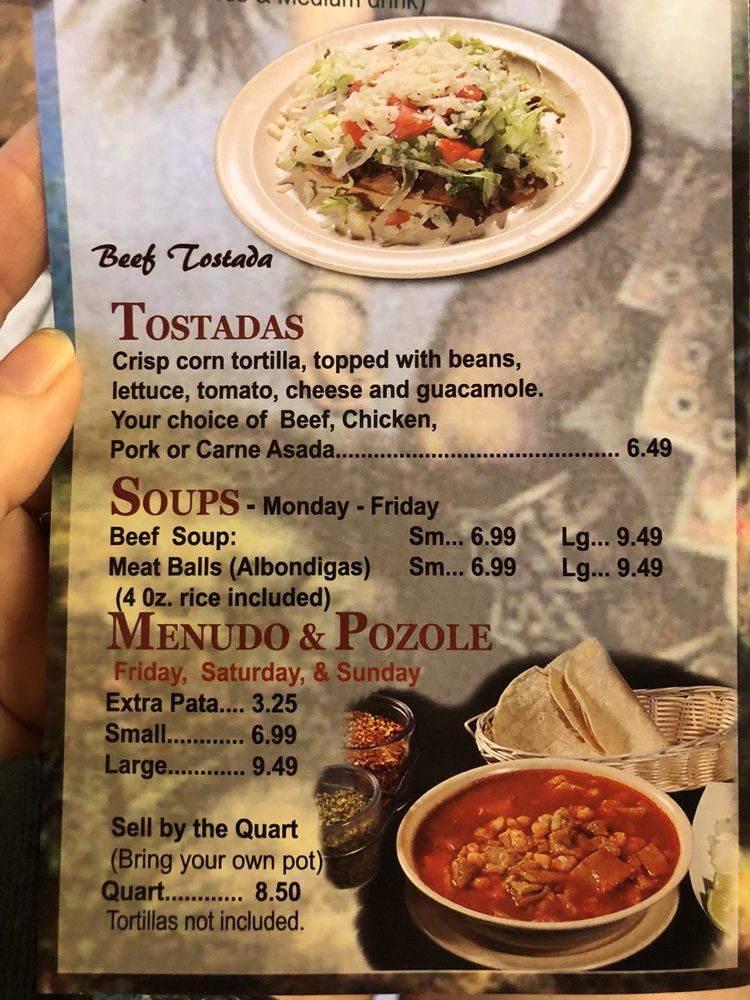 & Medium drink)
Beef Tostada
TOSTADAS
Crisp corn tortilla, topped with beans,
lettuce, tomato, cheese and guacamole.
Your choice of Beef, Chicken,
Pork or Carne Asada............................................ 6.49
SOUPS - Monday - Friday
Beef Soup: Sm... 6.99 Lg... 9.49
Meat Balls (Albondigas) Sm... 6.99 Lg... 9.49
(4 Oz. rice included)
MENUDO & POZOLE
Friday, Saturday, & Sunday
Extra Pata.... 3.25
Small............ 6.99
Large............ 9.49
Sell by the Quart
(Bring your own pot)
Quart............ 8.50
Tortillas not included.